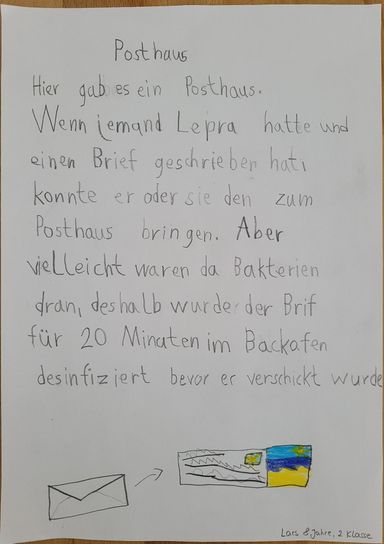 Posthaus
Hier gab es ein Posthaus.
Wenn jemand Lepra hatte und
einen Brief geschrieben hat,
konnte er oder sie den zum
Posthaus bringen. Aber
vielleicht waren da Bakterien
dran, deshalb wurde der Brif
für 20 Minuten im Backofen
desinfiziert bevor er verschickt wurde
Lars 8 Jahre, 2 Klasse